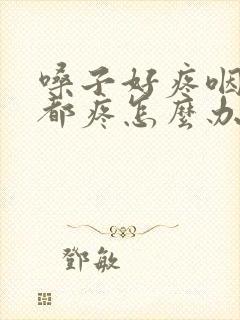 嗓子好疼咽
都疼怎麼办
鄧敏